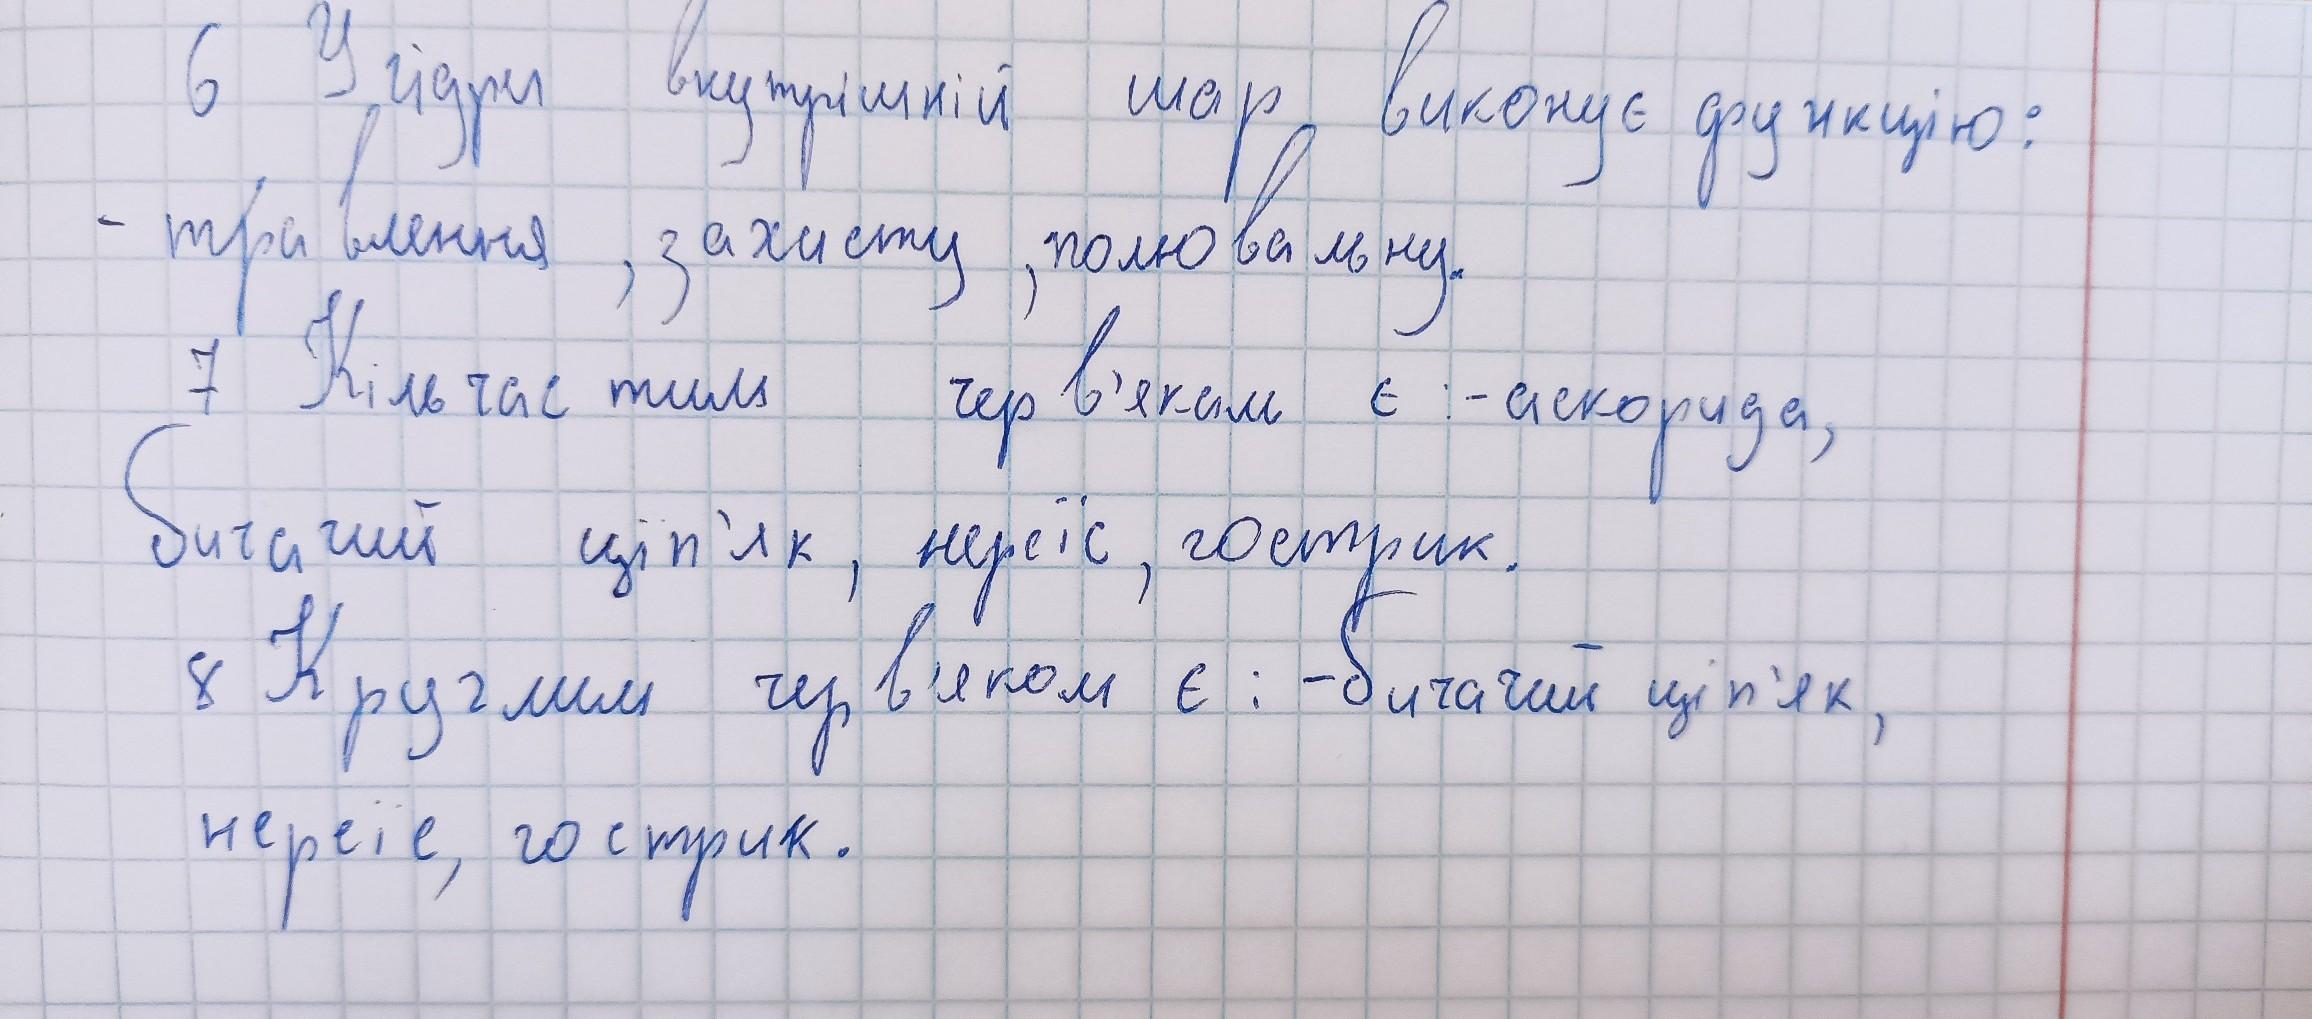 6 У гідри внутрішній шар виконує функцію:
- травлення, захисту, полювальну.
7 Кільчастим черв'яком є: - аскорида,
бичачий ціп'як, нереїс, гострик.
8 Круглим черв'яком є: - бичачий ціп'як,
нереїс, гострик.